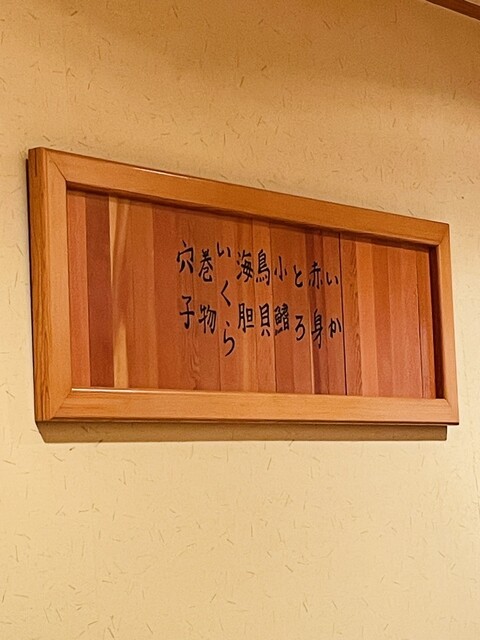 いか
赤身
とろ
小鰭
鳥貝
海胆
いくら
巻物
穴子